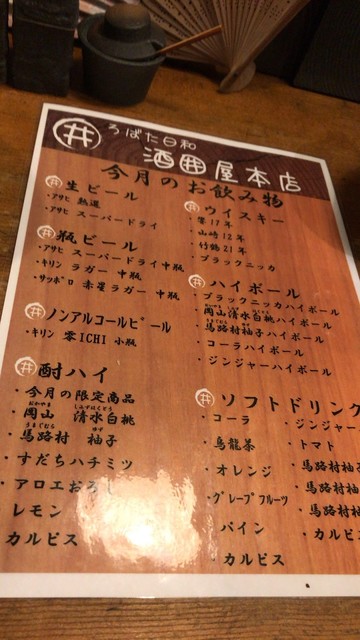 井 ろばた日和
酒囲屋本店
今月のお飲み物
井 生ビール
・アサヒ 熟選
・アサヒ スーパードライ
井 瓶ビール
・アサヒ スーパードライ中瓶
・キリン ラガー 中瓶
・サッポロ 赤星ラガー 中瓶
井 ノンアルコールビール
・キリン 零ICHI 小瓶
井 酎ハイ
・今月の限定商品
・岡山 清水白桃
・馬路村 柚子
・すだちハチミツ
・アロエおろし
レモン
カルピス
井 ウイスキー
・響17年
・山崎12年
・竹鶴21年
・ブラックニッカ
井 ハイボール
・ブラックニッカハイボール
・岡山清水白桃ハイボール
・馬路村柚子ハイボール
・コーラハイボール
・ジンジャーハイボール
井 ソフトドリンク
・コーラ
・烏龍茶
・オレンジ
・グレープフルーツ
・パイン
・カルピス
・ジンジャー
・トマト
・馬路村柚
・馬路村柚
・馬路村柚
・カルピ